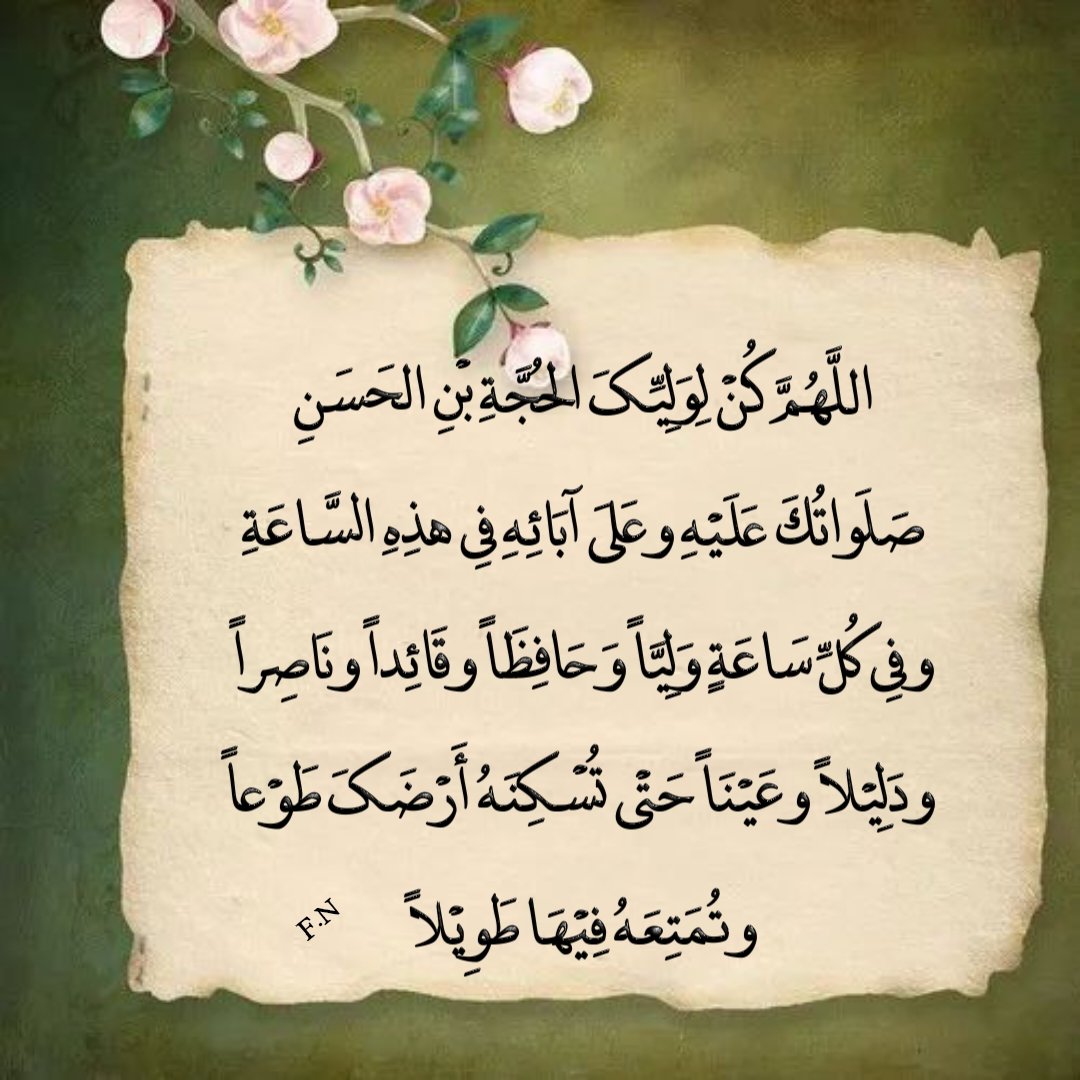 اللَّهُمَّ كُنْ لِوَلِيِّکَ الحُجَّةِ بْنِ الحَسَنِ
صَلَواتُكَ عَلَيْهِ وعَلَىَ آبَائِهِ فِي هذِهِ السَّاعَةِ
وفِي كُلِّ سَاعَةٍ وَلِيَّاً وَحَافِظَاً وقَائِداً ونَاصِراً
ودَلِيْلاً وعَيْنَاً حَتْى تُسْكِنَهُ أَرْضَکَ طَوْعاً
وتُمَتِعَهُ فِيْهَا طَوِيْلاً
F.N